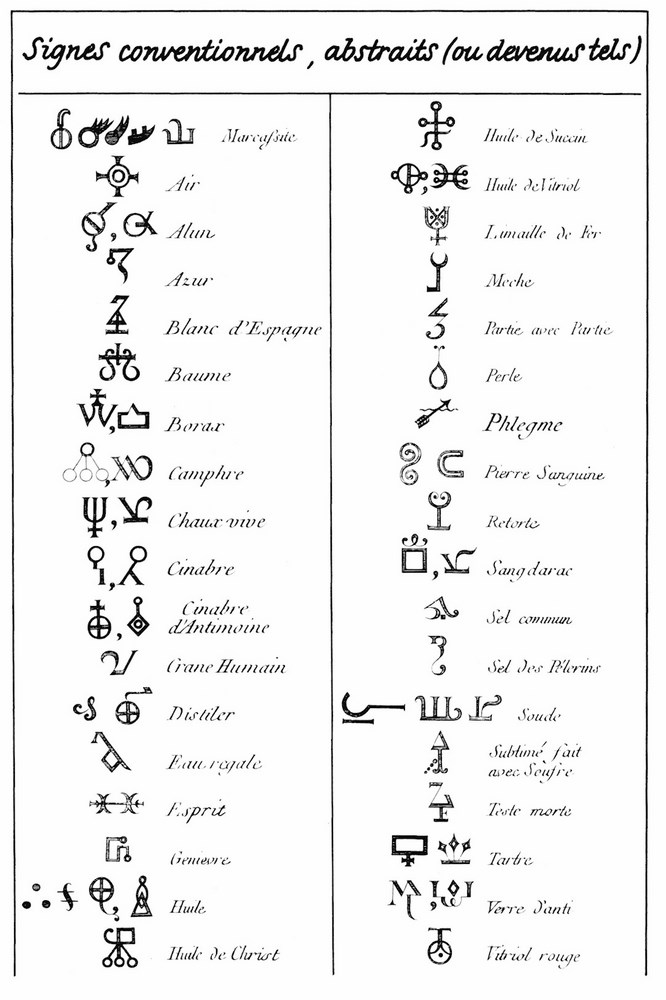 Signes conventionnels, abstraits (ou devenus tels)
Marcassite
Air
Alun
Azur
Blanc d'Espagne
Baume
Borax
Camphre
Chaux vive
Cinabre
Cinabre
d'Antimoine
Crane Humain
Distiler
Eau regale
Esprit
Genievre
Huile
Huile de Christ
Huile de Succin
Huile de Vitriol
Limaille de Fer
Meche
Partie avec Partie
Perle
Phlegme
Pierre Sanguine
Retorte
Sangdarac
Sel commun
Sel des Pèlerins
Soude
Sublimé fait
avec Soufre
Teste morte
Tartre
Verre d'anti
Vitriol rouge